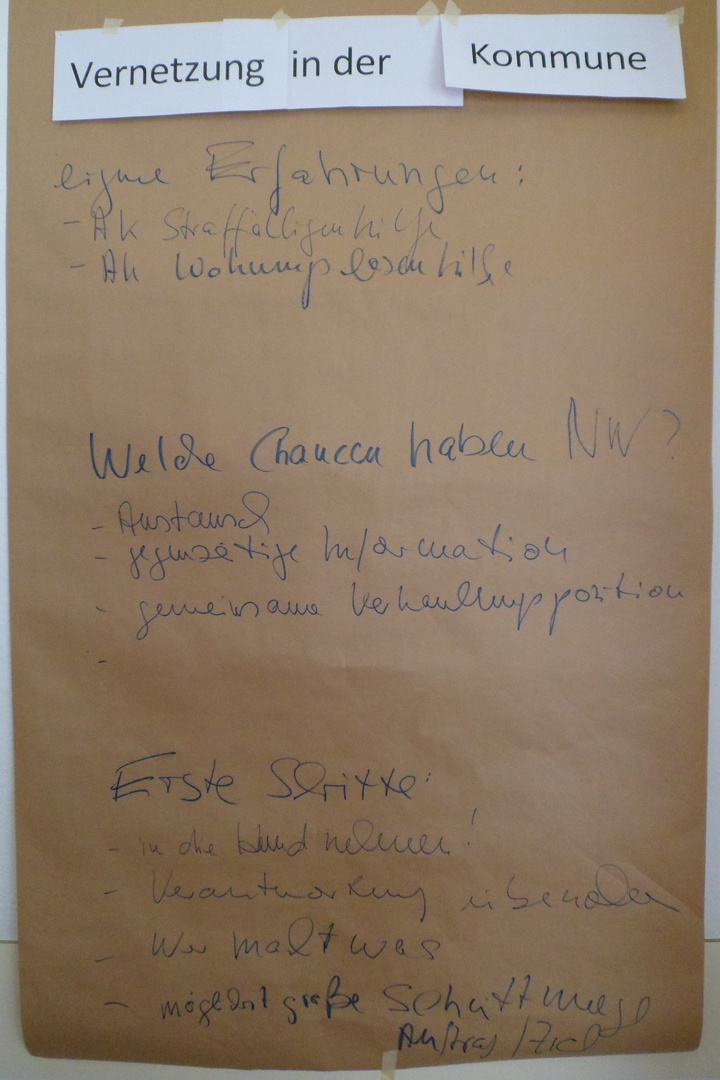 Vernetzung in der Kommune
eigene Erfahrungen:
- AK Straffälligenhilfe
- AK Wohnungslosenhilfe
Welche Chancen haben NW?
- Austausch
- gegenseitige Information
- gemeinsame Verhandlungsposition
-
Erste Schritte:
- in die Hand nehmen!
- Verantwortung übernehmen
- Wer macht was
- möglichst große Schnittmenge
Auftrag / Ziel